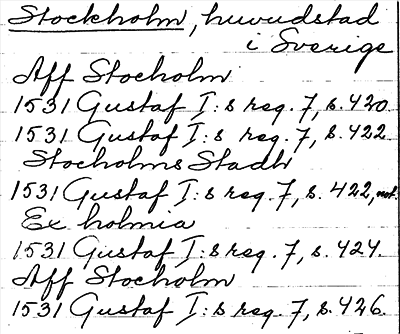 Stockholm, huvudstad
i Sverige
Aff Stocholm
1531 Gustaf I:s reg. 7, s. 420
1531 Gustaf I:s reg. 7, s. 422
Stocholms Stadh
1531 Gustaf I:s reg. 7, s. 422, not.
Ex holmia
1531 Gustaf I:s reg. 7, s. 424.
Aff Stocholm
1531 Gustaf I:s reg. 7, s. 426.